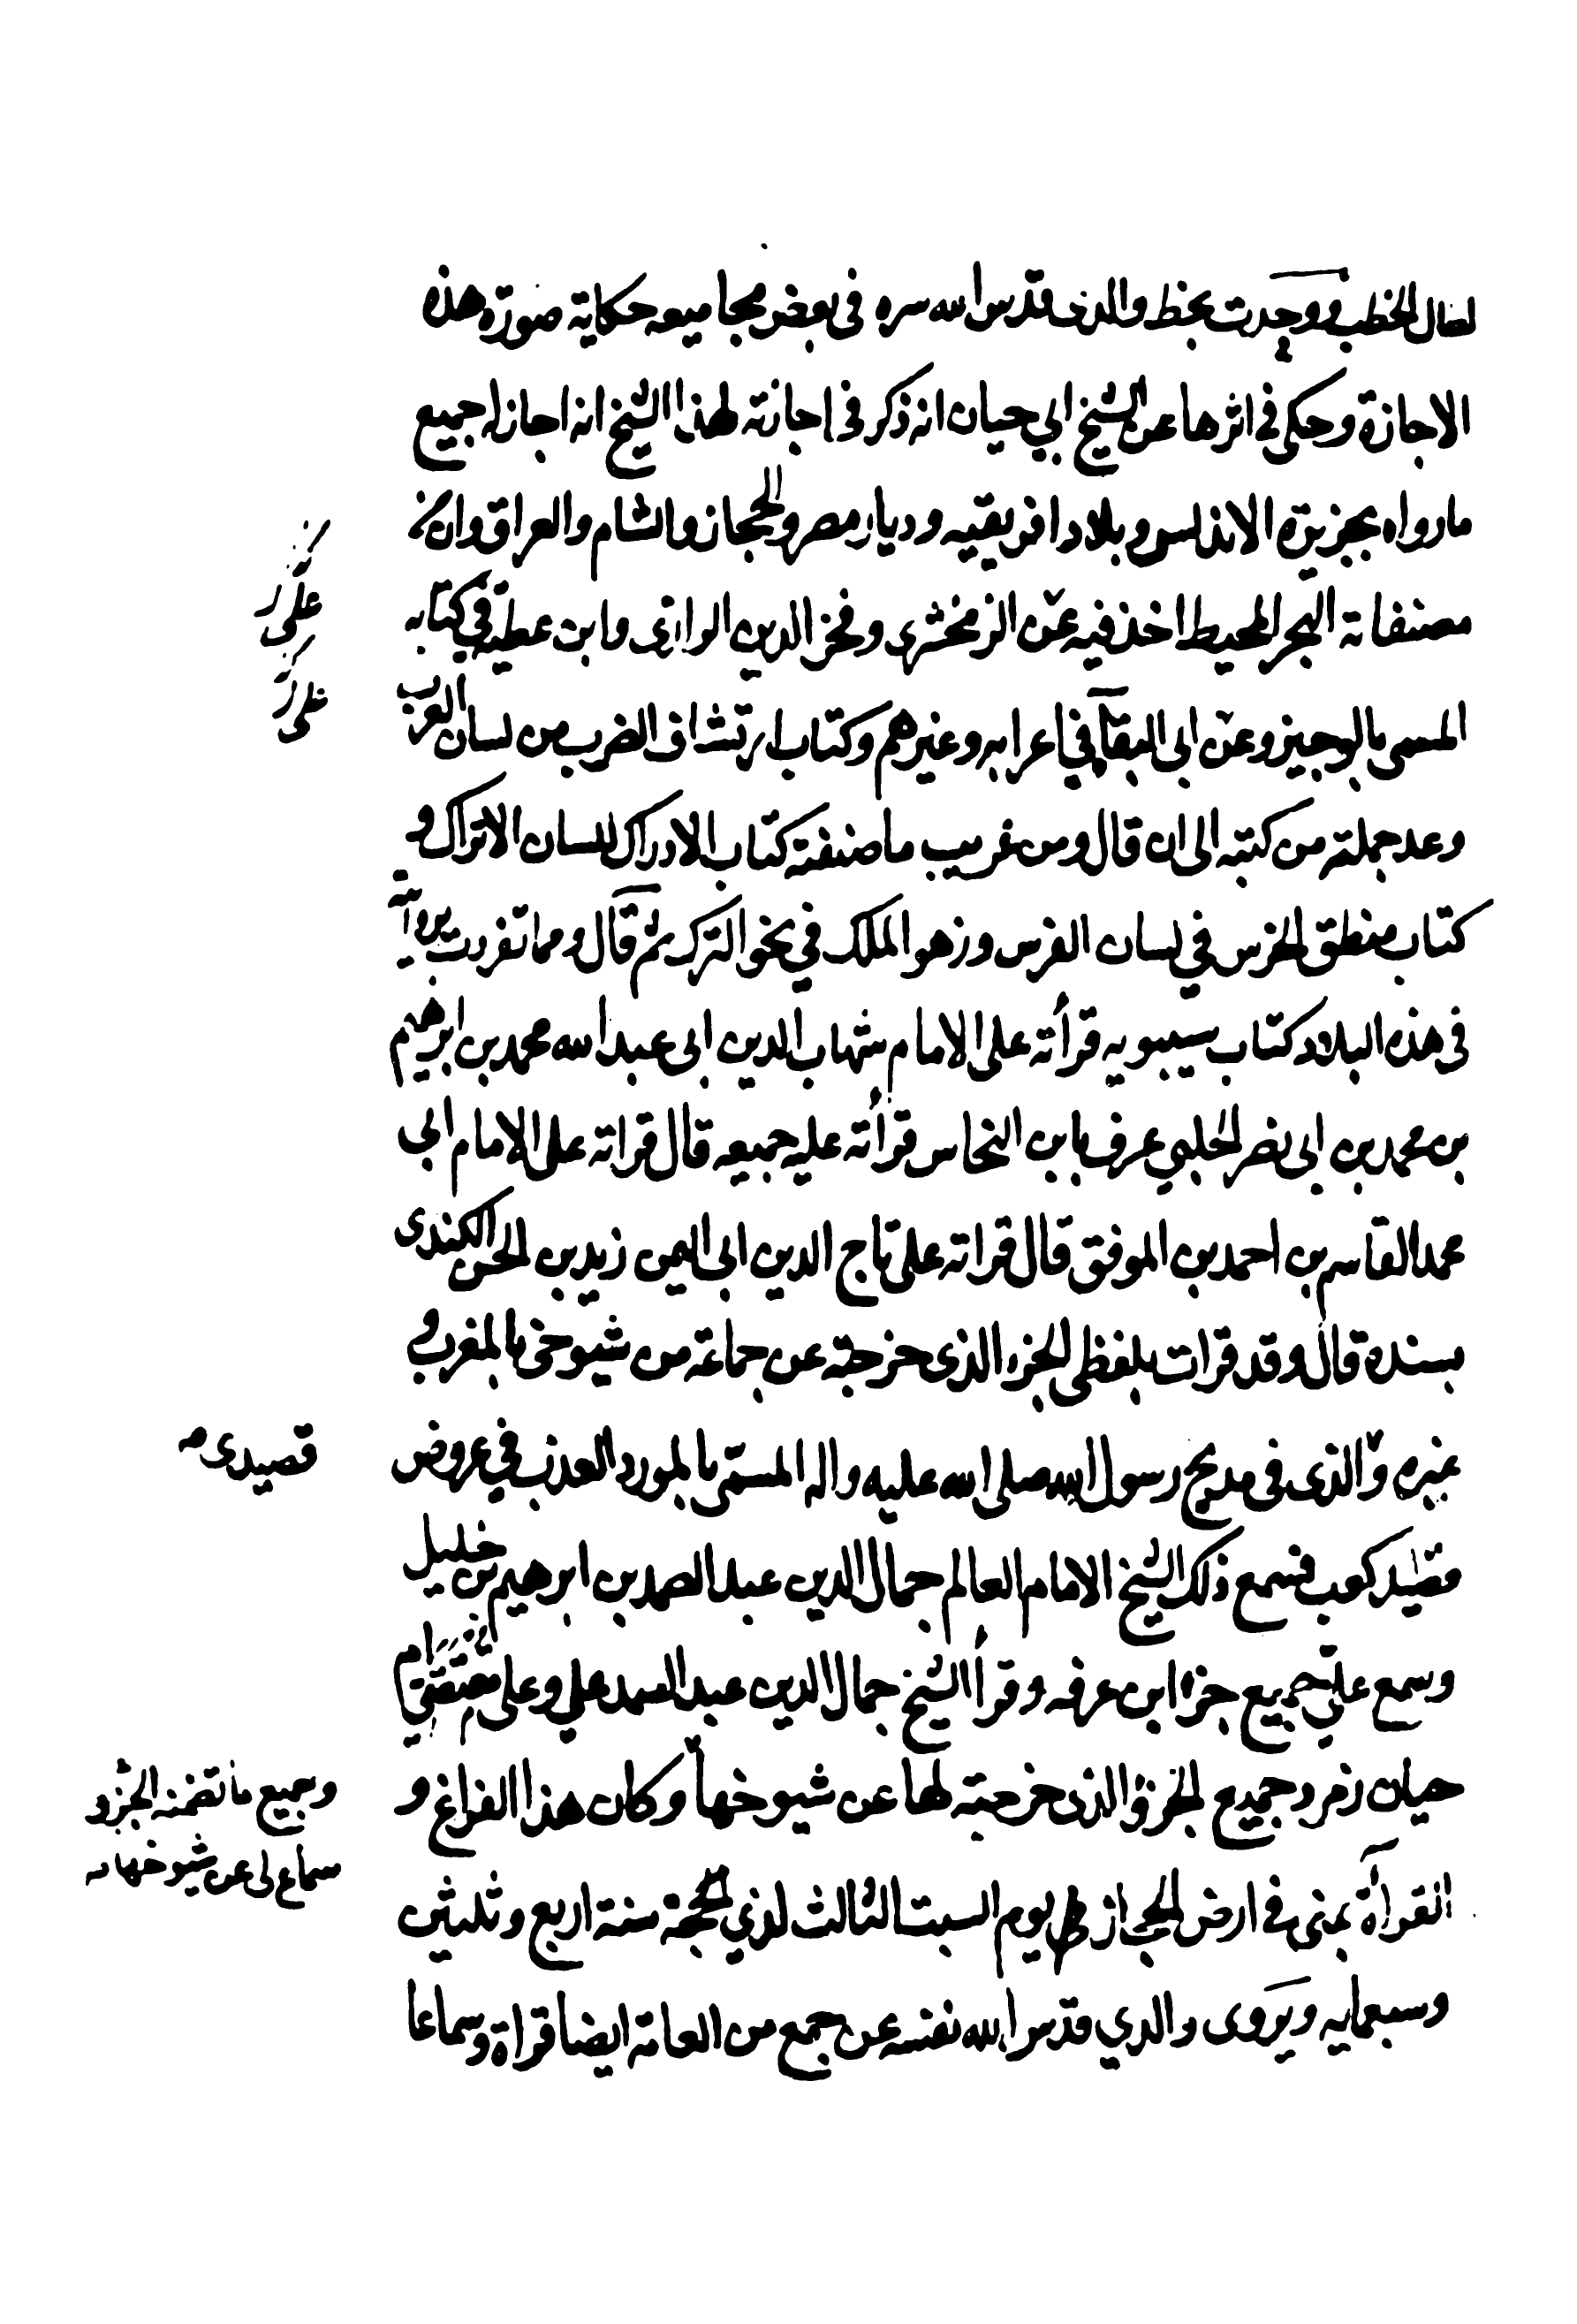 لطال الخطب ووجدت بخط والدى قدس الله سره فى بعض مجاميعه حكاية صورة هذه
الاجازة وحكى فى اثرها عن الشيخ ابي حيان انه ذكر فى اجازته لهذا الشيخ انه اجاز له جميع
مارواه بجزيرة الاندلس وبلاد افريقيه وديار مصر والحجاز والشام والعراق وان من
مصنفاته البحر المحيط اخذ فيه عن الزمخشرى وفخر الدين الرازى وابن عطية في كتابه
المسمى بالوجيز وعن ابى البقآ في اعرابه وغيرهم وكتاب ارتشاف الضرب من لسان العرب
وعد جملة من كتبه الى ان قال ومن غريب ما صنفته كتاب الادراك للسان الاتراك و
كتاب منطق الخرس في لسان الفرس وزهو الملك في نحو الترك ثم قال ومما تفردت بروايته
فى هذه البلاد كتاب سيبويه قرأته على الامام شهاب الدين ابى عبد الله محمد بن ابرهيم
بن محمد بن ابى نصر الحلبي عرف بابن النحاس قرأته عليه جميعه قال قراته على الامام ابي
محمد القاسم بن احمد بن الموفق قال قراته على تاج الدين ابى اليمن زيد بن الحسن الكندى
بسنده قال وقد قرات بلفظى الجزء الذى خرجته عن جماعة من شيوخى بالمغرب و
غيره والذى فى مديح رسول الله صلى الله عليه واله المسمى بالمورد العذب في عروض
قصيدى
قصيد كعب فسمع ذلك الشيخ الامام العالم جمال الدين عبد الصمد بن ابرهيم بن خليل
وسمع علي جميع جزء ابن عرفه وقرأ الشيخ جمال الدين عبد الصمد علي وعلى ام
حيان زمرد جميع الجزؤ الذى خرجته لها عن شيوخها وكان هذا الفراغ و
وبجميع ما تضمنه الجزؤ
سماع لى عن شيوخها
القرآة بمنى فى ارض الحجاز يوم السبت الثالث لذي الحجة سنة اربع وثلثين
وسبعمايه ويروى والدي قدس الله نفسه عن جمع من العامة ايضا قراة وسماعا